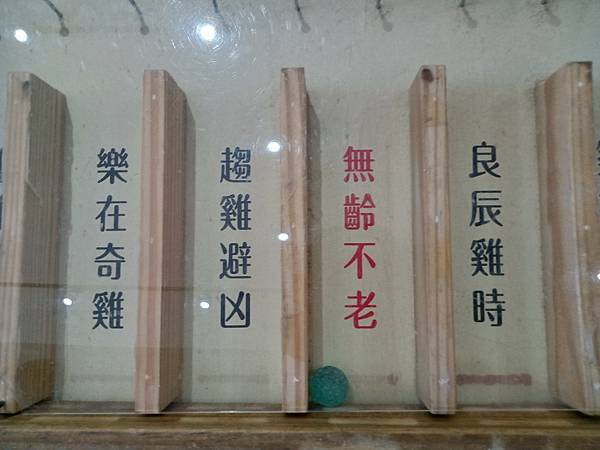 樂在奇雞
趨雞避凶
無齡不老
良辰雞時